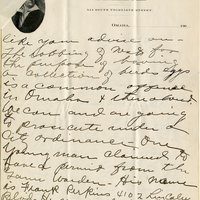 OMAHA,
like your advice on -
The Robbing of nests for
the purpose of having
a collection of birds eggs
is a common offense
in Omaha & thereabout.
We can and are going
to prosecute under a
City ordinance. One
young man claimed to
have a permit from the
Game Warden - His name
is Frank Perkins 4102 Lincoln
Blvd